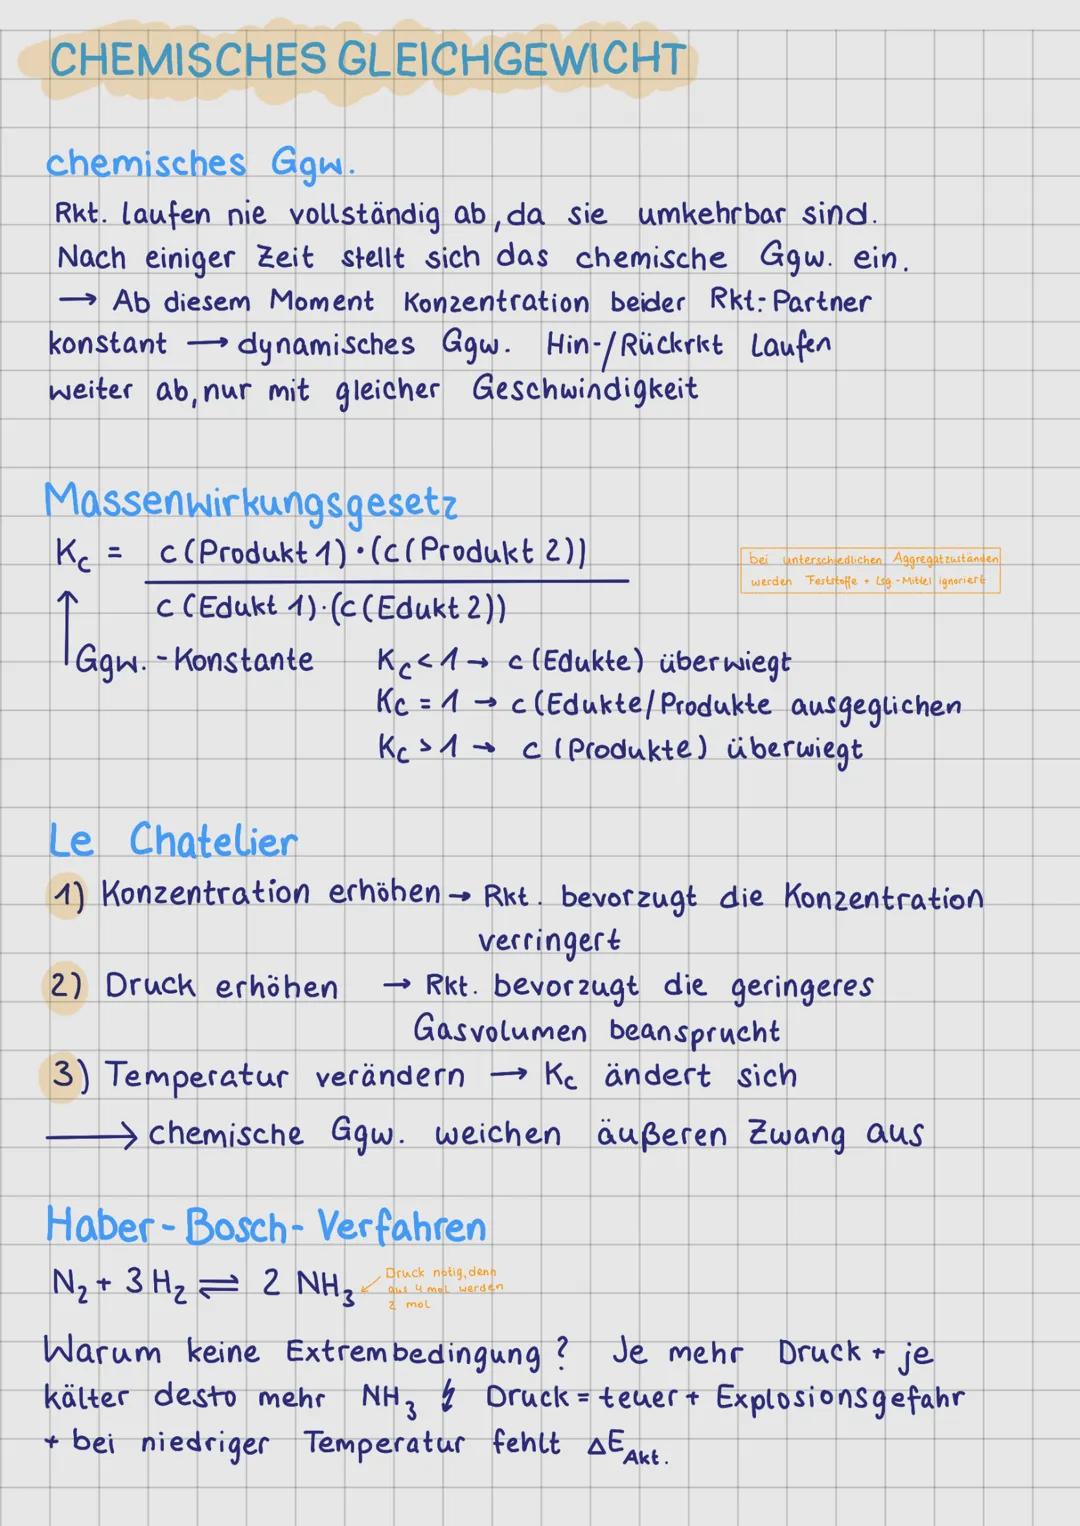 CHEMISCHES GLEICHGEWICHT
chemisches Ggw.
Rkt. laufen nie vollständig ab, da sie umkehrbar sind.
Nach einiger Zeit stellt sich das chemische Ggw. ein.
→ Ab diesem Moment Konzentration beider Rkt.-Partner
konstant → dynamisches Ggw. Hin-/Rückrkt laufen
weiter ab, nur mit gleicher Geschwindigkeit
Massenwirkungsgesetz
Kc = c(Produkt 1)·(c(Produkt 2))
c(Edukt 1)·(c(Edukt 2))
bei unterschiedlichen Aggregatzuständen
werden Feststoffe + Lsg.-Mittel ignoriert
↑ Ggw.-Konstante
Kc < 1 → c(Edukte) überwiegt
Kc = 1 → c(Edukte/Produkte ausgeglichen
Kc > 1 → c(Produkte) überwiegt
Le Chatelier
1) Konzentration erhöhen → Rkt. bevorzugt die Konzentration
verringert
2) Druck erhöhen → Rkt. bevorzugt die geringeres
Gasvolumen beansprucht
3) Temperatur verändern → Kc ändert sich
→ chemische Ggw. weichen äußeren Zwang aus
Haber-Bosch-Verfahren
N₂ + 3 H₂ ⇌ 2 NH₃
Druck nötig, denn
aus 4 mol werden
2 mol
Warum keine Extrembedingung? Je mehr Druck + je
kälter desto mehr NH₃ ↯ Druck = teuer + Explosionsgefahr
+ bei niedriger Temperatur fehlt ΔE Akt.